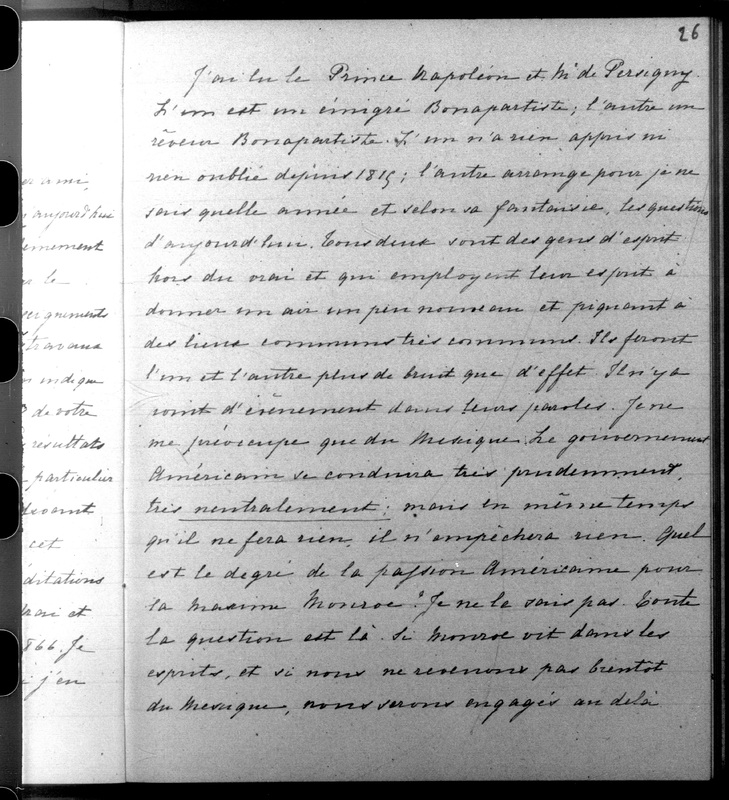 26
J'ai lu le Prince Napoléon et Mr de Persigny.
L'un est un émigré Bonapartiste; l'autre un
rêveur Bonapartiste. L'un n'a rien appris ni
rien oublié depuis 1815; l'autre arrange pour je ne
sais quelle année et selon sa fantaisie, les questions
d'aujourd'hui. Tous deux sont des gens d'esprit
hors du vrai et qui employent leur esprit à
donner un air un peu nouveau et piquant à
des lieux communs très communs. Ils feront
l'un et l'autre plus de bruit que d'effet. Il n'y a
point d'évènement dans leurs paroles. Je ne
me préoccupe que du Mexique. Le gouvernement
Américain se conduira très prudemment,
très neutralement; mais en même temps
qu'il ne fera rien, il n'empêchera rien. Quel
est le degré de la passion Américaine pour
la maxime Monroe? Je ne la sais pas. Toute
la question est là. Si Monroe vit dans les
esprits, et si nous ne revenons pas bientôt
du Mexique, nous serons engagés au delà
ami,
aujourd'hui
le
travaux
indique
de votre
résultats
particulier
devant
cet
vrai et
1866. Je
j'en